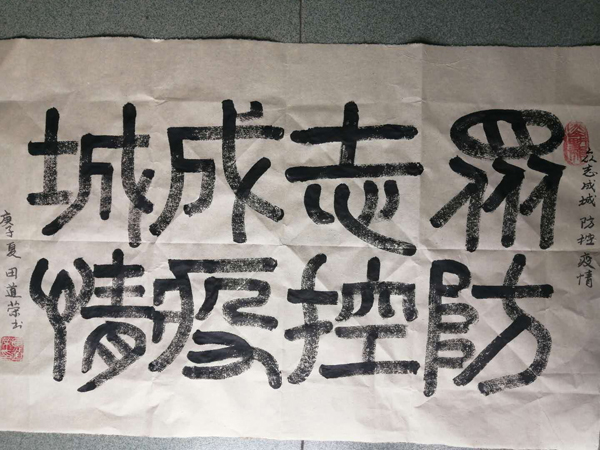 众志成城 防控疫情
眾志成城
防控疫情
庚子夏田道荣书